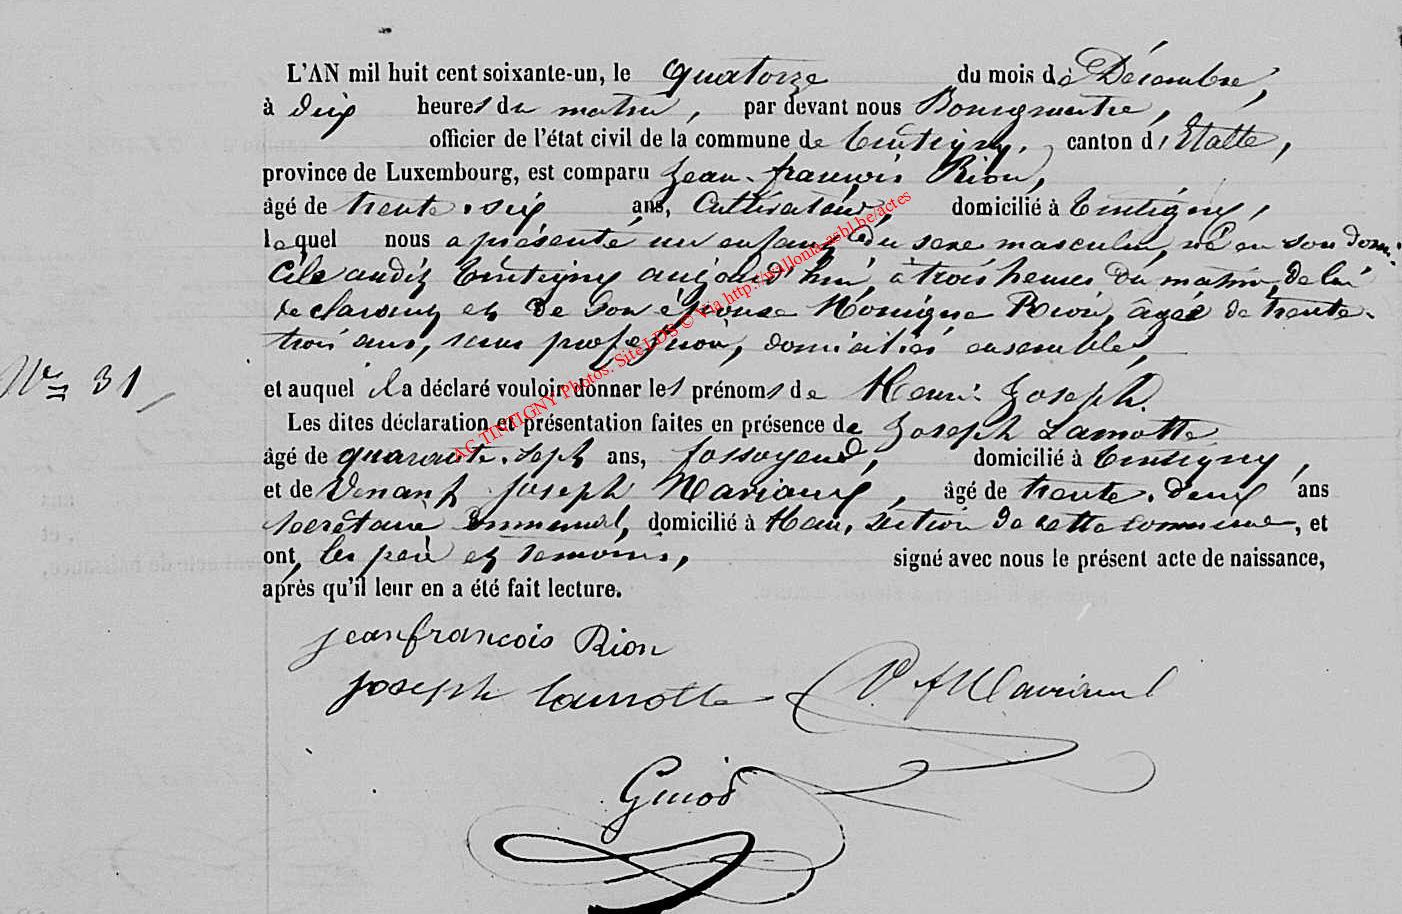 L'AN mil huit cent soixante-un, le quatorze du mois de Décembre,
à dix heures du matin, par devant nous Bourgmestre,
officier de l'état civil de la commune de Tintigny, canton d'Etalle,
province de Luxembourg, est comparu Jean-françois Rion,
âgé de trente-six ans, Cultivateur, domicilié à Tintigny,
lequel nous a présenté un enfant du sexe masculin, né en son domi-
cile audit Tintigny aujourd'hui, à trois heures du matin, de lui
declarant et de son épouse Monique Rion, âgée de trente-
trois ans, sans profession, domiciliés ensemble,
N° 31
et auquel il a déclaré vouloir donner les prénoms de Henri Joseph.
Les dites déclaration et présentation faites en présence de Joseph Lamotte
âgé de quarante-sept ans, fossoyeur, domicilié à Tintigny,
et de Venant Joseph Mariaux, âgé de trente-deux ans
secrétaire communal, domicilié à Han, section de cette commune, et
ont, les père et temoins, signé avec nous le présent acte de naissance,
après qu'il leur en a été fait lecture.
jeanfrancois Rion
joseph lamotte V. J Mariaux
AC TINTIGNY Photos. Site LDS © Via http://wallonia-asbl.be/actes